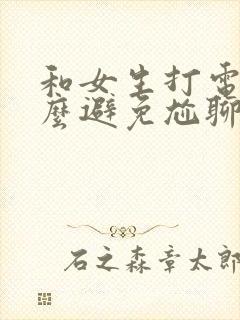 和女生打電
麼避免尬聊
石之森章太郎